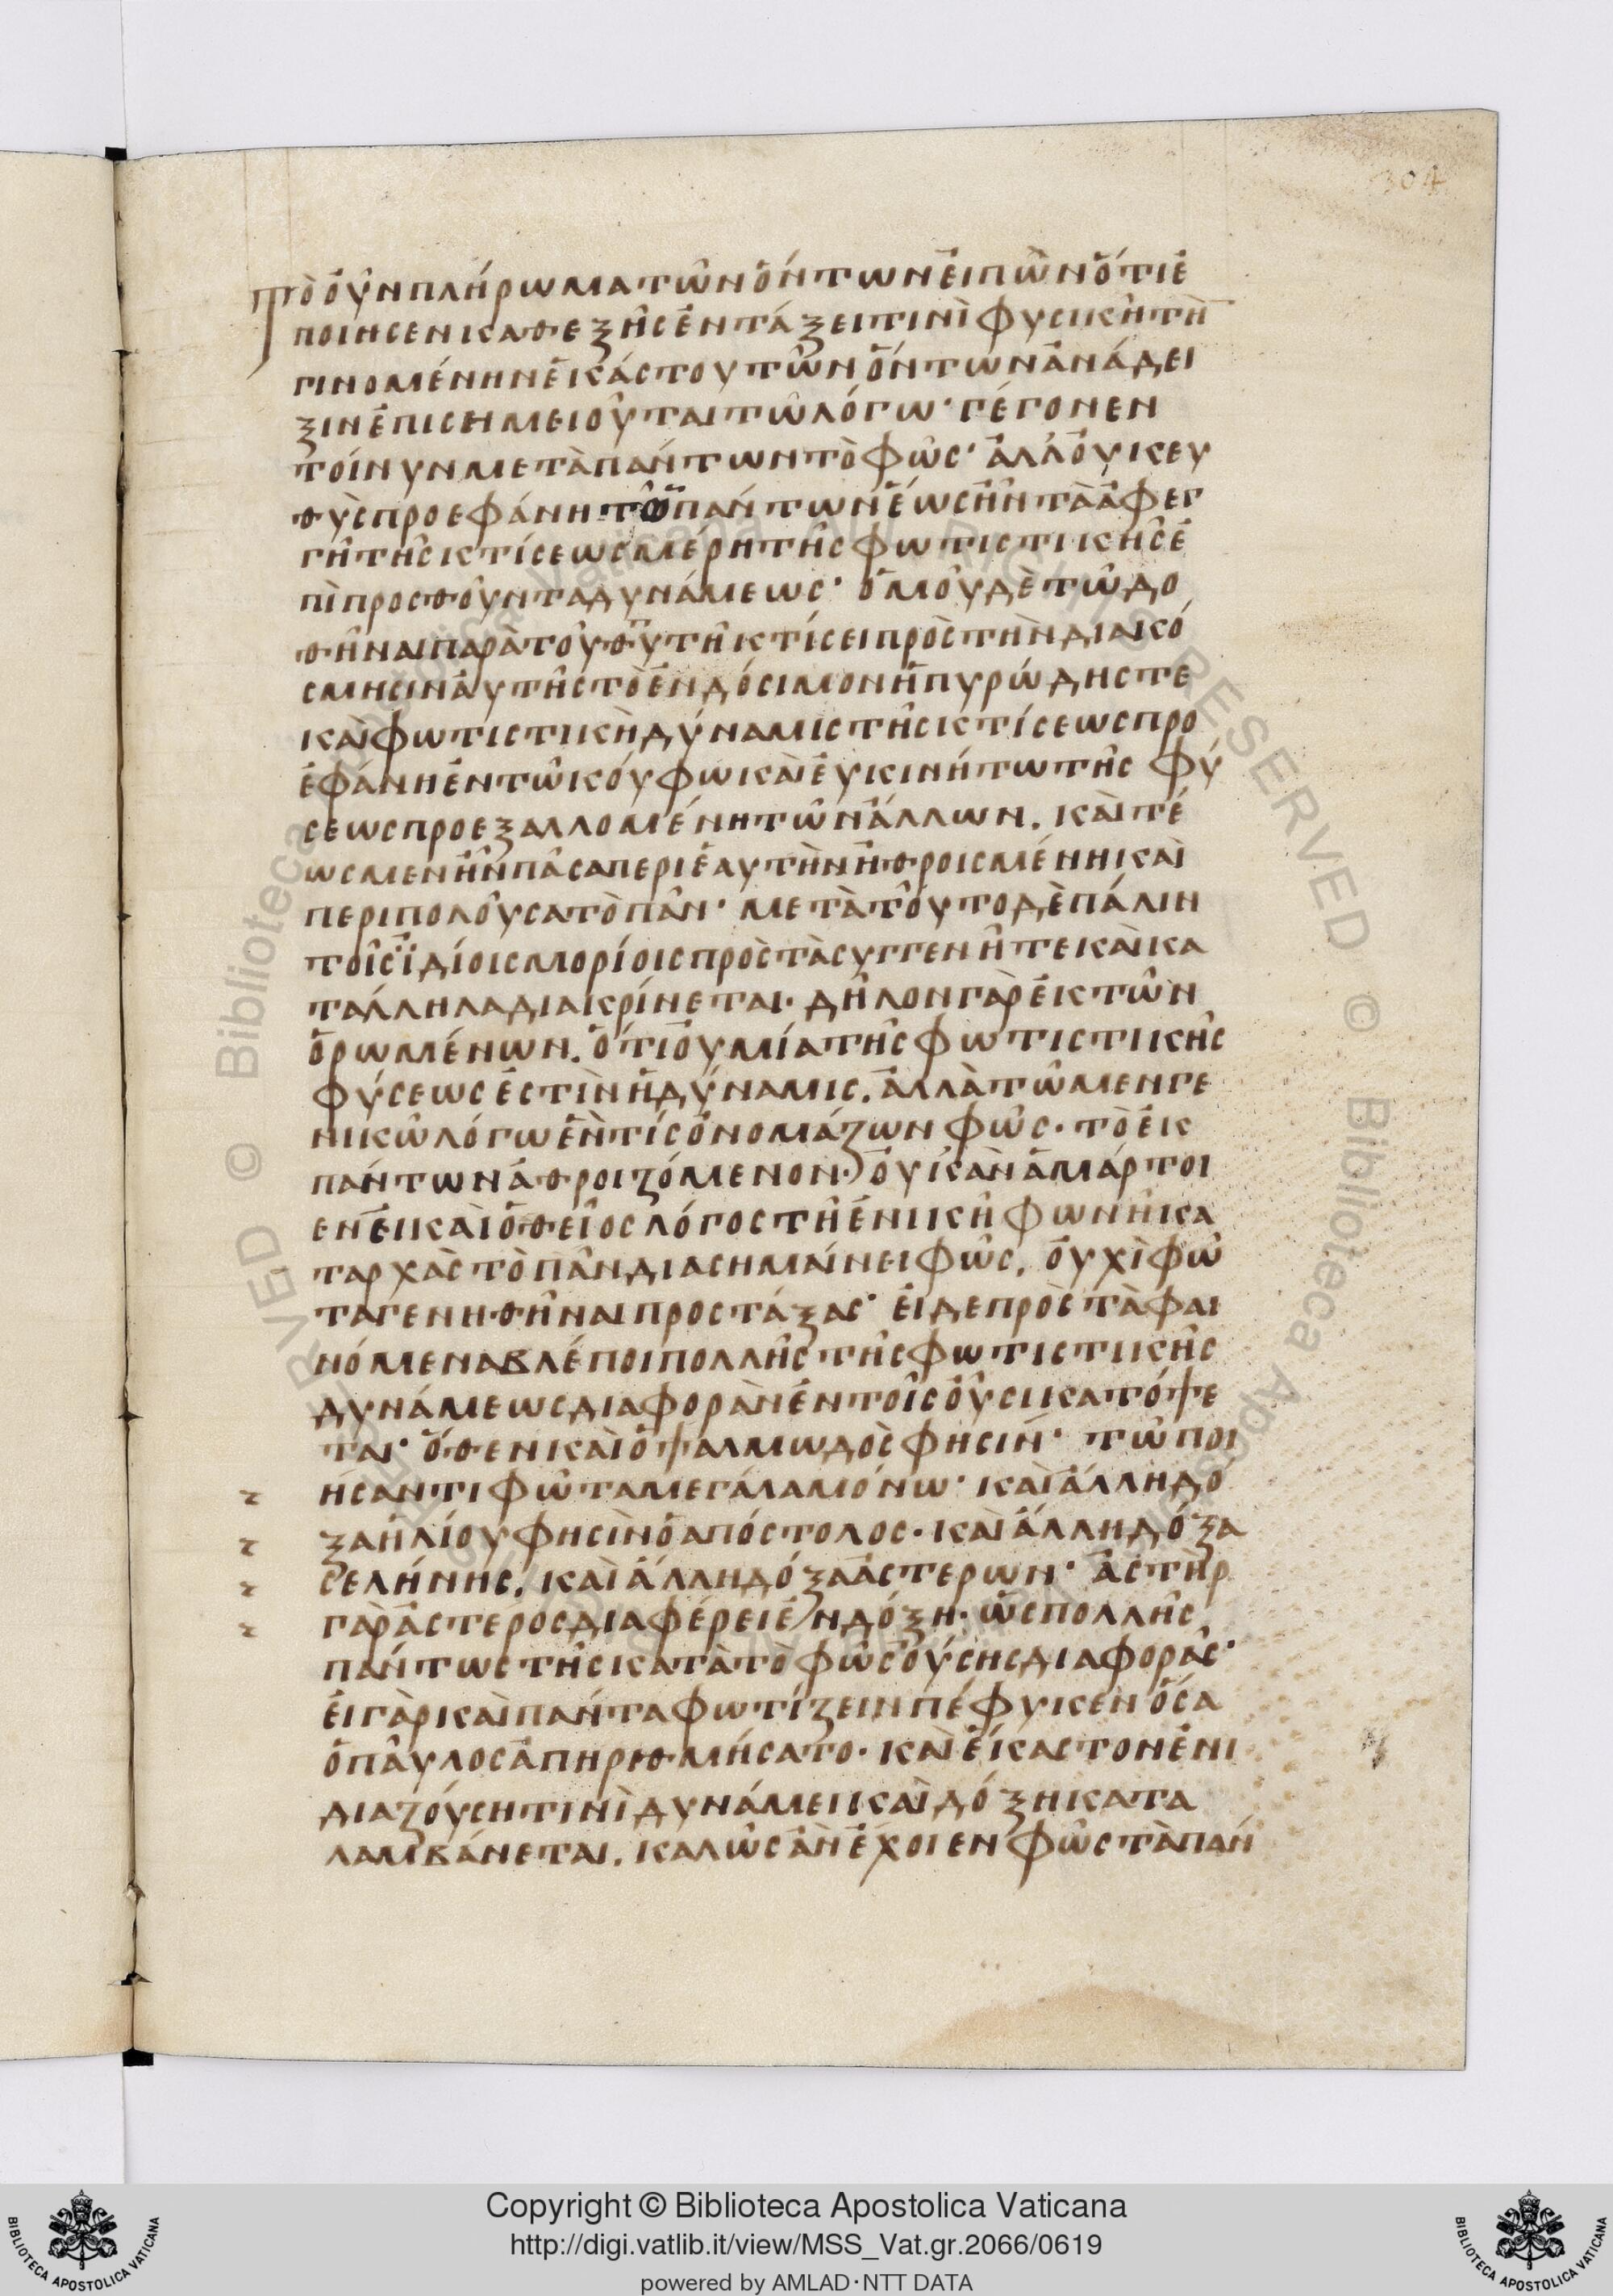 304
Τὸ οὖν πλήρωμα τῶν ὄντων εἰπὼν ὅτι ἐ
ποίησεν καθεξῆς ἐν τάξει τινὶ φυσικῆ τὴ
γινομένην ἑκάστου τῶν ὄντων ἀνάδει
ξιν ἐπισημειοῦται τῶ λόγω· γέγονεν
τοίνυν μετὰ πάντων τὸ φῶς· ἀλλ' οὐκ εὐ
θὺς προεφάνη τῶ πάντων ἕως ἦν τὰ ἀφεγ
γῆ τῆς κτίσεως μέρη τῆς φωτιστικῆς ἐ
πιπροσθοῦντα δυνάμεως· ὁμοῦ δὲ τῶ δο
θῆναι παρὰ τοῦ θυ τῆ κτίσει πρὸς τὴν διακό
σμησιν αὐτῆς τὸ ἐνδόσιμον ἡ πυρώδης τε
καὶ φωτιστικὴ δύναμις τῆς κτίσεως προ
εφάνη ἐν τῶ κούφω καὶ εὐκινήτω τῆς φύ
σεως προεξαλλομένη τῶν ἄλλων. καὶ τέ
ως μεν ἦν πᾶσα περι ἑαυτὴν ἠθροισμένη καὶ
περιπολοῦσα τὸ πᾶν· μετὰ τοῦτο δὲ πάλιν
τοῖς ϊδίοις μορίοις πρὸς τὰ συγγενῆ τε καὶ κα
τάλληλα διακρίνεται· δῆλον γὰρ ἐκ τῶν
ὁρωμένων. ὅτι οὐ μία τῆς φωτιστικῆς
φύσεως ἐστὶν ἡ δύναμις. ἀλλὰ τῶ μεν γε
νικῶ λόγω ἕν τίς ὀνομάζων φῶς· τὸ ἐκ
πάντων ἀθροιζόμενον· οὐκ ἂν ἁμάρτοι
εν εἰ καὶ ὁ θεῖος λόγος τῆ ἑνικῆ φωνῆ κα
ταρχὰς τὸ πᾶν διασημαίνει φῶς. οὐχὶ φῶ
τα γενηθῆναι προστάξας· εἰ δε πρὸς τὰ φαι
νόμενα βλέποι πολλῆς τῆς φωτιστικῆς
δυνάμεως διαφορὰν ἐν τοῖς οὖσι κατόψε
ται· ὅθεν καὶ ὁ ψαλμωδὸς φησίν· τῶ ποι
ήσαντι φῶτα μεγάλα μόνω· καὶ ἄλλη δό
ξα ἡλίου φησὶν ὁ απόστολος· καὶ ἄλλη δόξα
σελήνης. καὶ ἄλλη δόξα ἀστερων· ἀστὴρ
γὰρ ἀστέρος διαφέρει ἐν δόξη· ὡς πολλῆς
πάντως τῆς κατὰ τὸ φῶς οὔσης διαφορᾶς·
εἰ γὰρ καὶ πάντα φωτίζειν πέφυκεν ὅσα
ὁ παῦλος ἀπηριθμήσατο· καὶ ἕκαστον ἐν ἰ
διαζούση τινὶ δυνάμει καὶ δόξη κατα
λαμβάνεται. καλῶς ἂν ἔχοι εν φῶς τὰ πάν
Copyright © Biblioteca Apostolica Vaticana
http://digi.vatlib.it/view/MSS_Vat.gr.2066/0619
powered by AMLAD·NTT DATA